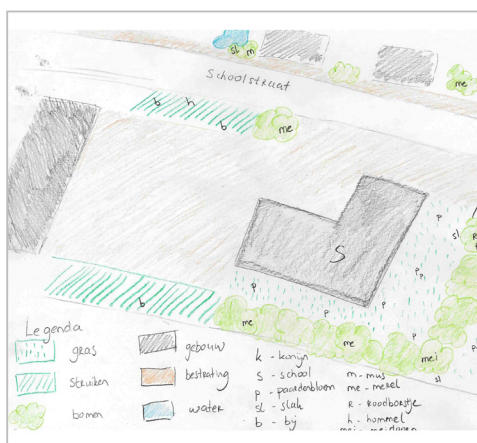 sl m
me
Schoolstraat
b h
b
me
p
sl
R
S
p
p
p
p
b
me
p
me
p
mei
sl
Legenda
gras
struiken
bomen
gebouw
bestrating
water
k - konijn
S - school
p - paardenbloem
sl - slak
b - bij
m - mus
me - merel
R - Roodborstje
h - hommel